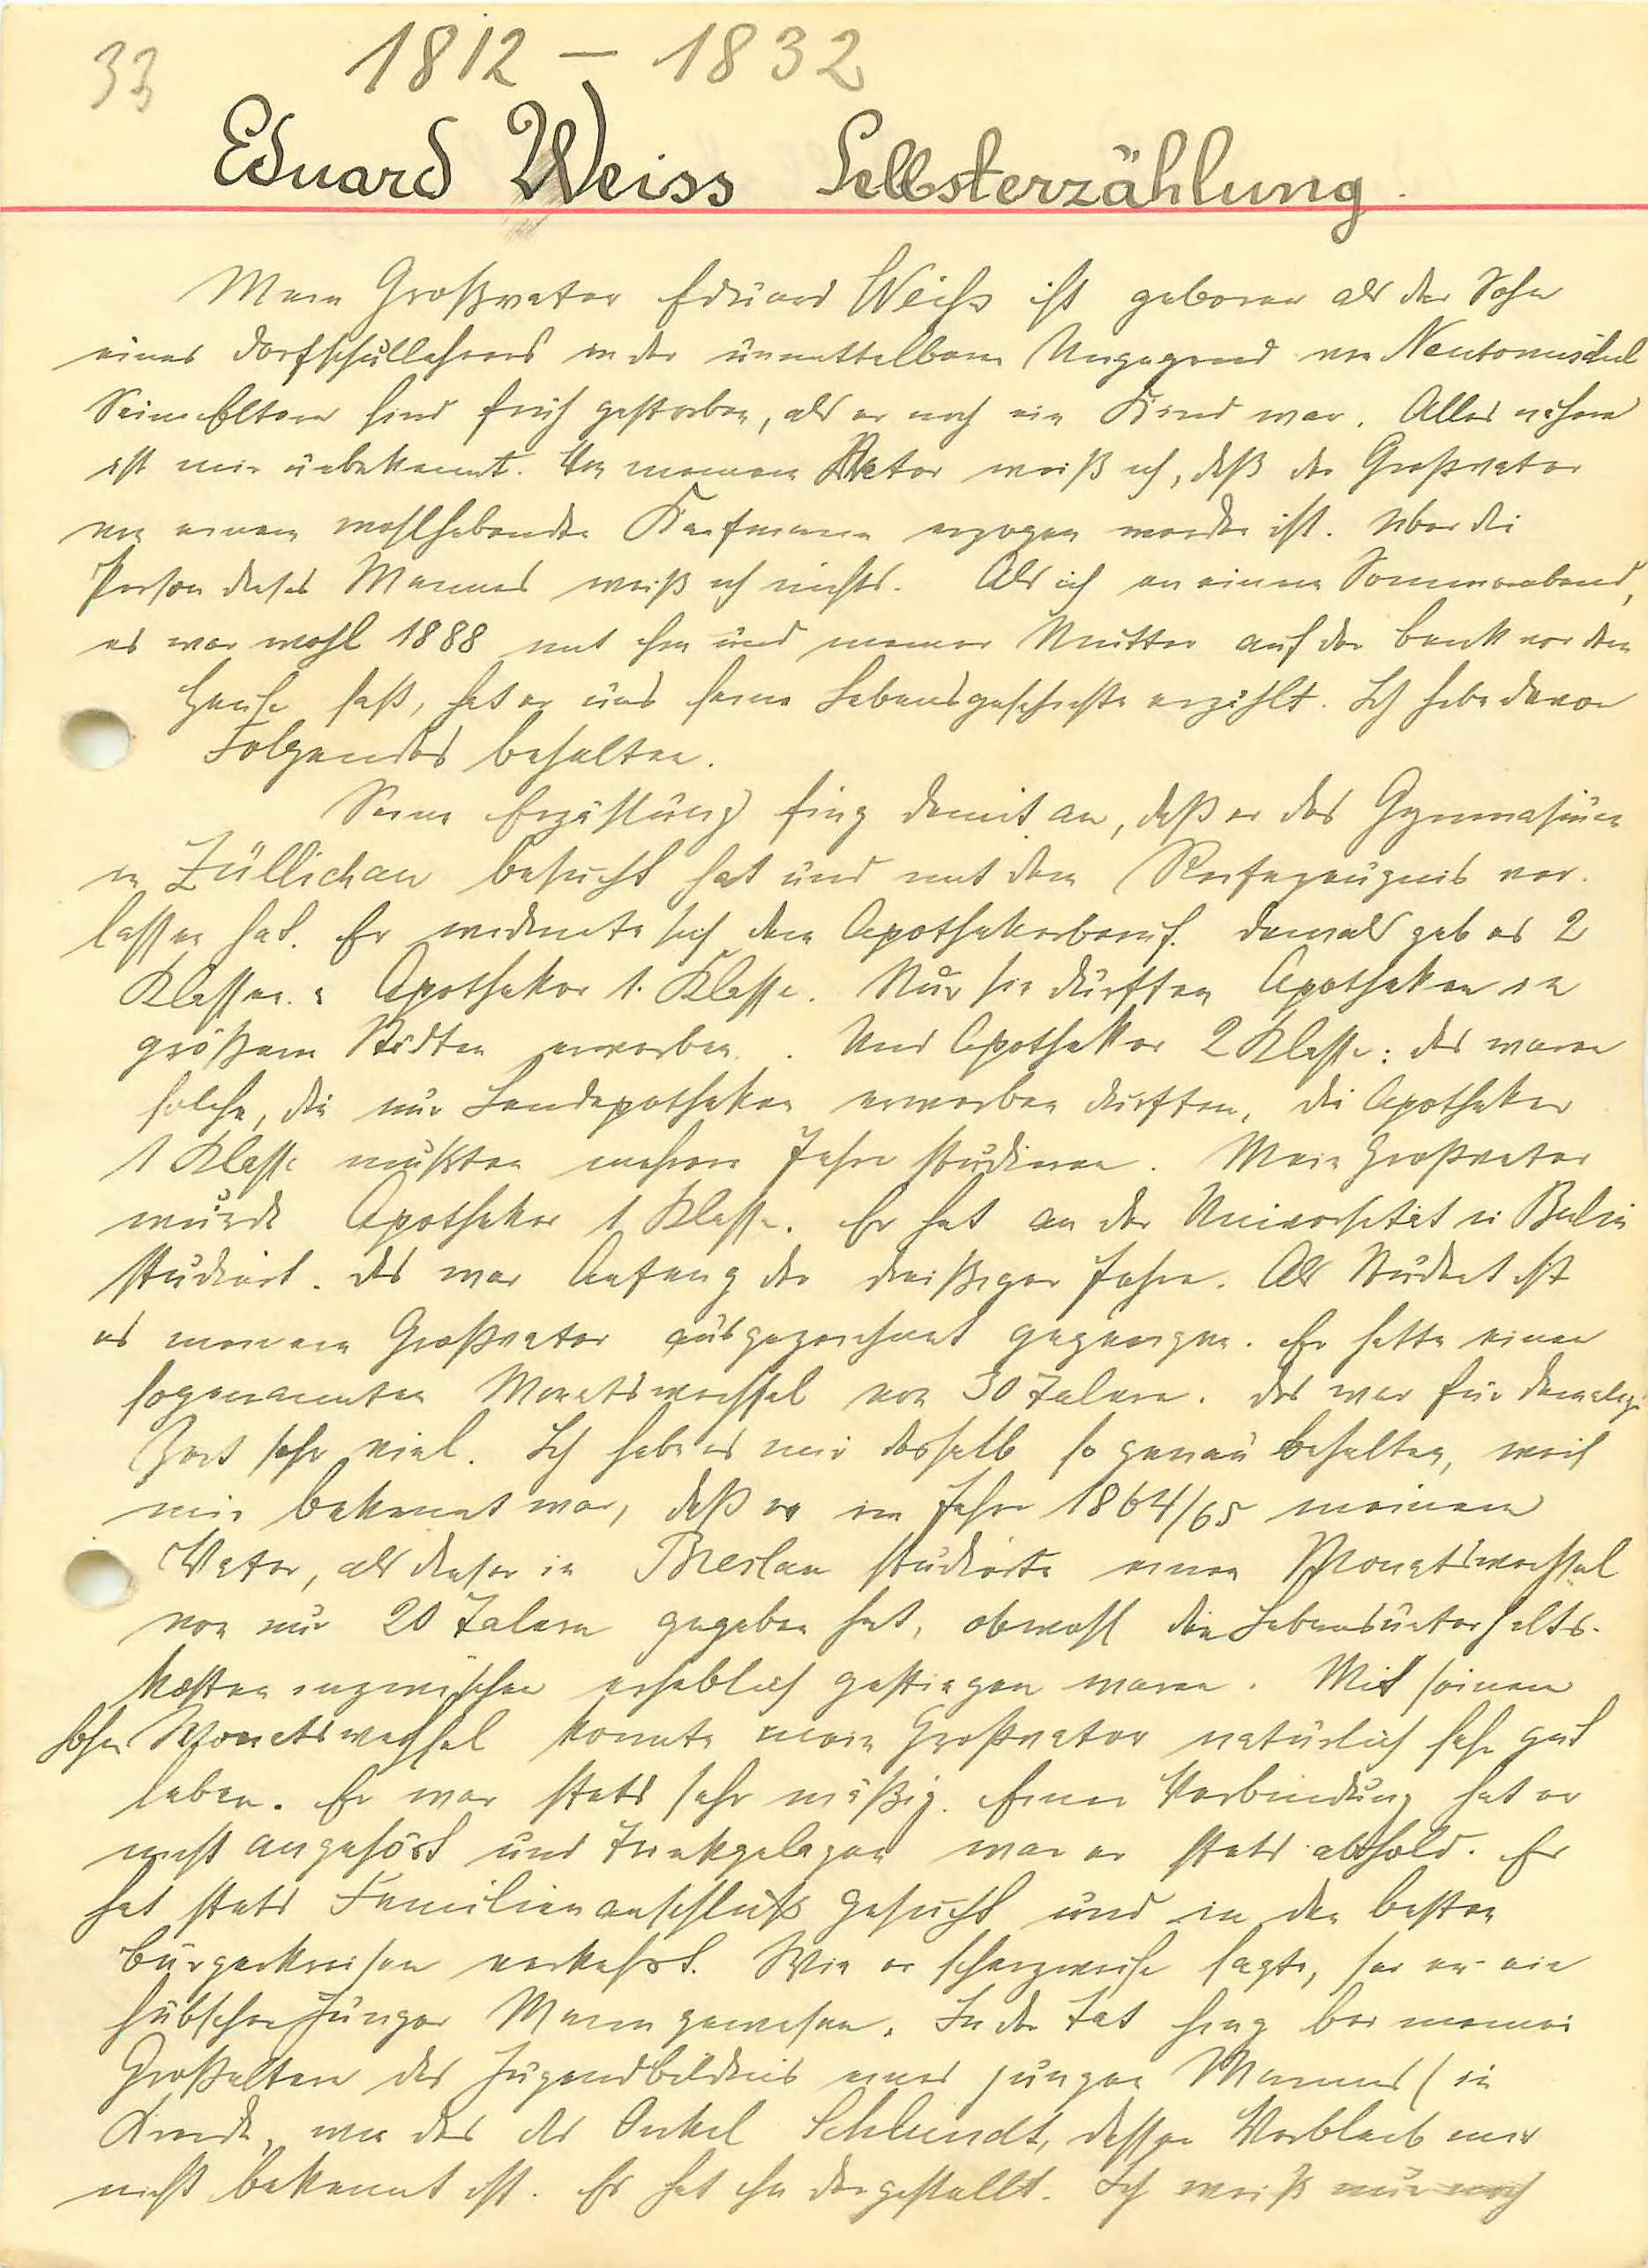 33
1812 – 1832
Eduard Weiss Selbsterzählung.
Mein Großvater Eduard Weiß ist geboren als der Sohn
eines Dorfschullehrers in der unmittelbaren Umgegend von Neutomischel
Seine Eltern sind früh gestorben, als er noch ein Kind war. Alles nähere
ist mir unbekannt. Von meinem Vater weiß ich, daß der Großvater
von einem wohlhabenden Kaufmann erzogen worden ist. Über die
Person dieses Mannes weiß ich nichts. Als ich an einem Sommerabend,
es war wohl 1888 mit ihm und meiner Mutter auf der Bank vor dem
Hause saß, hat er uns seine Lebensgeschichte erzählt. Ich habe davon
Folgendes behalten.
Seine Erzählung fing damit an, daß er das Gymnasium
in Züllichau besucht hat und mit dem Reifezeugnis ver-
lassen hat. Er widmete sich dem Apothekerberuf. Damals gab es 2
Klassen: Apotheker 1. Klasse. Nur sie durften Apotheken in
größern Städten erwerben. Und Apotheker 2 Klasse: das waren
solche, die nur Landapotheken erwerben durften. Die Apotheker
1 Klasse mußten mehrere Jahre studieren. Mein Großvater
wurde Apotheker 1 Klasse. Er hat an der Universität in Berlin
studiert. Das war Anfang der dreißiger Jahre. Als Student ist
es meinem Großvater ausgezeichnet gegangen. Er hatte einen
sogenannten Monatswechsel von 30 Talern. Das war für damalige
Zeit sehr viel. Ich habe es mir deshalb so genau behalten, weil
mir bekannt war, daß er im Jahre 1864/65 meinem
Vater, als dieser in Breslau studierte einen Monatswechsel
von nur 20 Talern gegeben hat, obwohl die Lebensunterhalts-
kosten inzwischen erheblich gestiegen waren. Mit seinem
hohen Monatswechsel konnte mein Großvater natürlich sehr gut
leben. Er war stets sehr mäßig. Einer Verbindung hat er
nicht angehört und Trinkgelagen war er stets abhold. Er
hat stets Familienanschluß gesucht und in den besten
Bürgerkreisen verkehrt. Wie er scherzweise sagte, sei er ein
hübscher junger Mann gewesen. In der Tat hing bei meinen
Großeltern das Jugendbildnis eines jungen Mannes (in
Kreide, wie das der Onkel Schlundt, dessen Verbleib mir
nicht bekannt ist. Es hat ihn dargestellt. Ich weiß nur noch